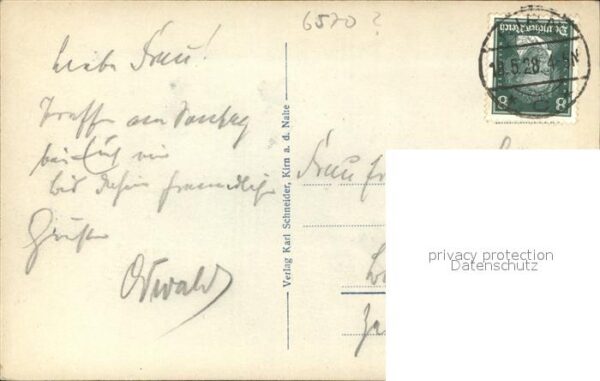 6570?
Liebe Frau!
Treffe am Sonntag
bei Euch ein
bis dahin freundliche
Grüße
Oswald
Verlag Karl Schneider, Kirn a. d. Nahe
Frau
Deutsches Reich
8 8
5.28. 4-5N
* c *
privacy protection
Datenschutz